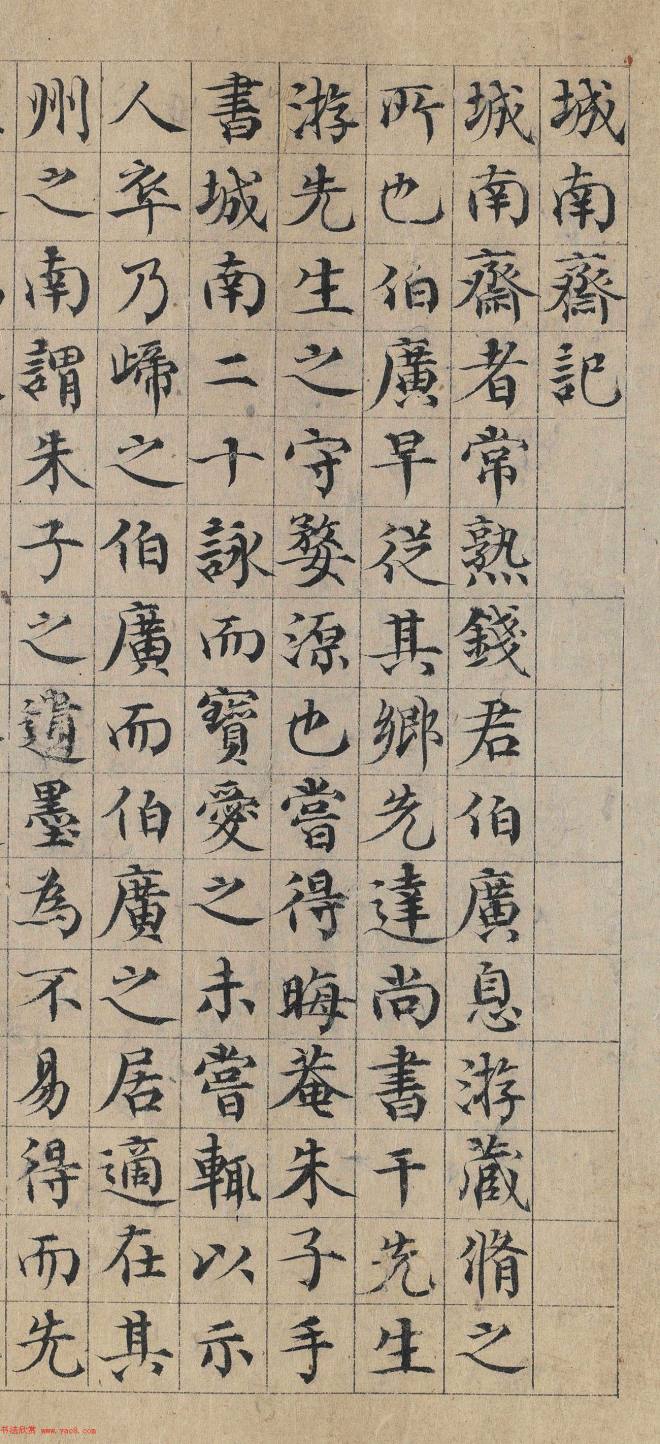 城南齋記
城南齋者常熟錢君伯廣息游藏脩之
所也伯廣早從其鄉先達尚書干先生
游先生之守婺源也嘗得晦菴朱子手
書城南二十詠而寶愛之未嘗輒以示
人卒乃歸之伯廣而伯廣之居適在其
州之南謂朱子之遺墨為不易得而先
书法欣赏 www.yac8.com